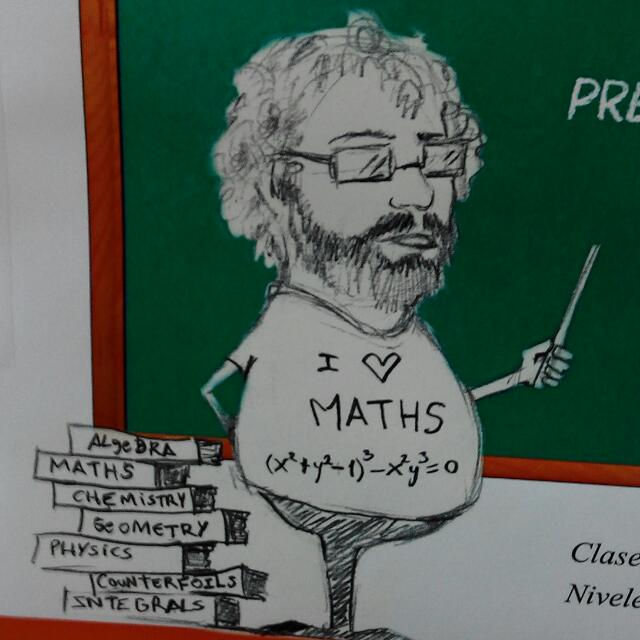 PRE
I ♡
MATHS
(x²+y²-1)³-x²y³=0
ALGEBRA
MATHS
CHEMISTRY
GEOMETRY
PHYSICS
COUNTERFOILS
INTEGRALS
Clase
Nivele